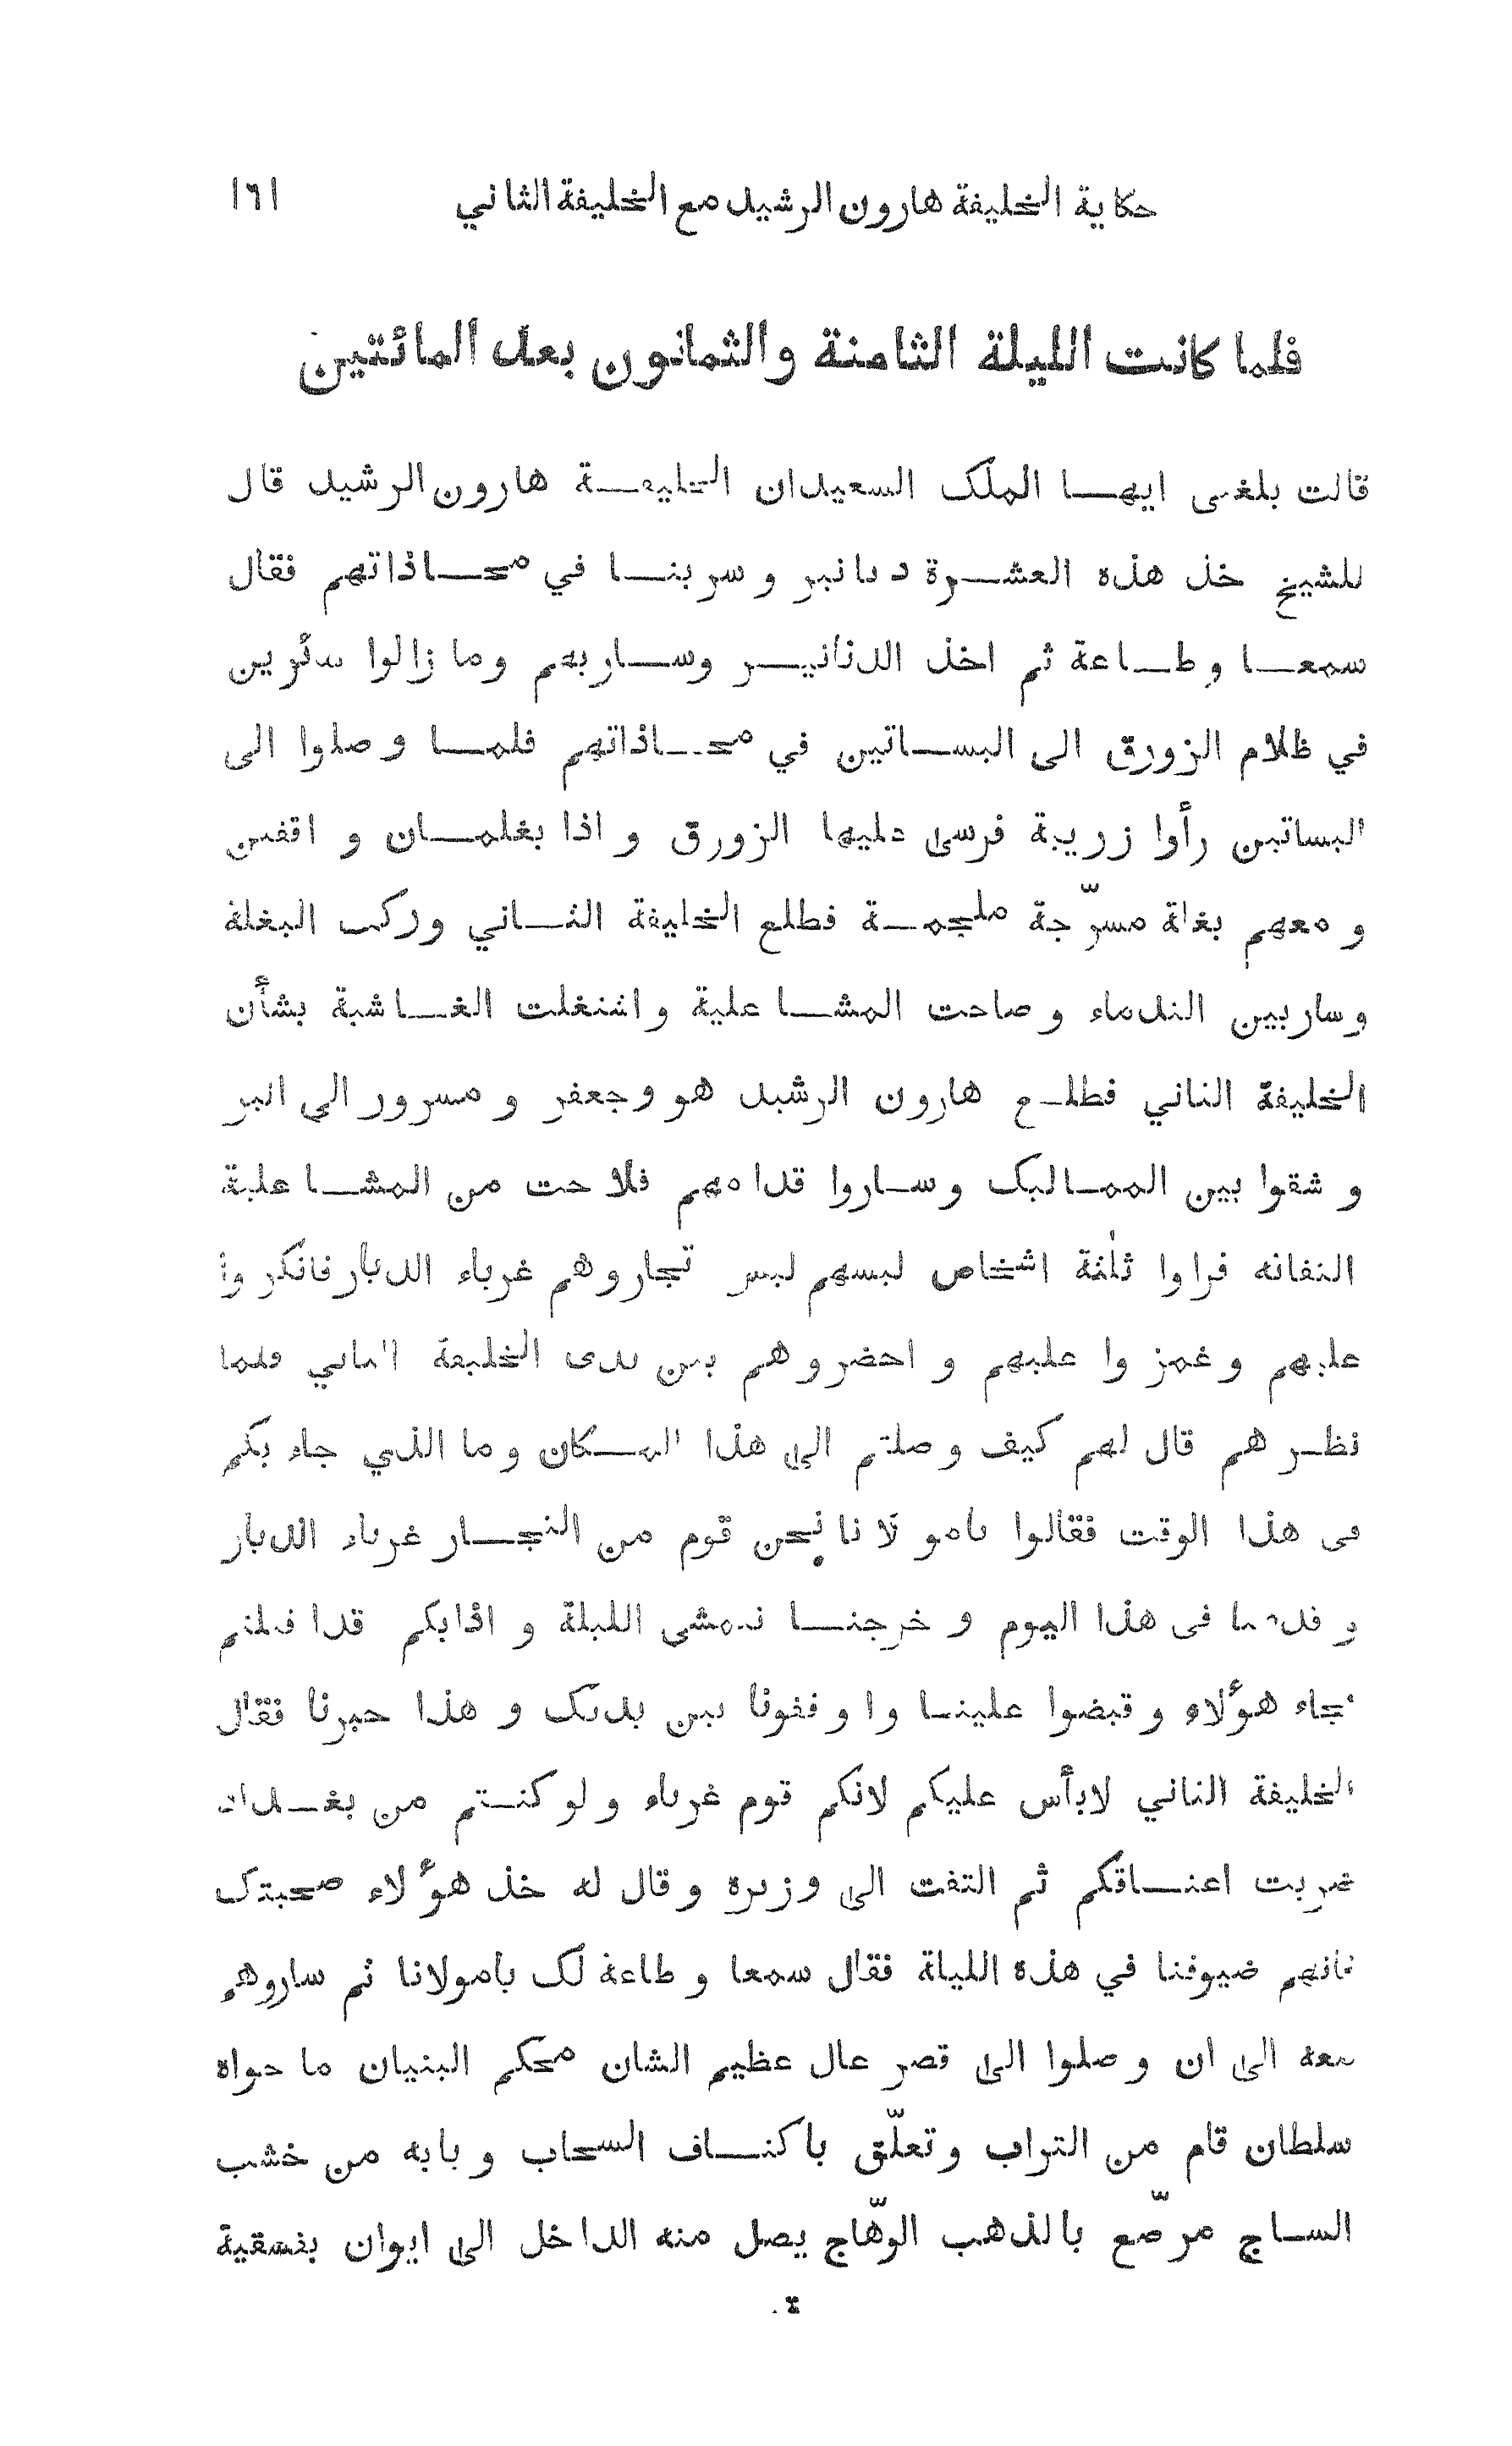 حكاية الخليفة هارون الرشيد مع الخليفة الثاني ١٦١
فلما كانت الليلة الثامنة والثمانون بعد المائتين
قالت بلغني ايهـا الملك السعيد ان الخليفـة هارون الرشيد قال
للشيخ خذ هذه العشـرة دنانير وسر بنـا في محـاذاتهم فقال
سمعـا وطـاعة ثم اخذ الدنانيـر وسـار بهم وما زالوا سائرين
في ظلام الزورق الى البسـاتين في محـاذاتهم فلمـا وصلوا الى
البساتين رأوا زريبة فرسى عليها الزورق و اذا بغلمـان و اقفين
و معهم بغلة مسرّجة ملجمـة فطلع الخليفة الثـاني وركب البغلة
وسار بين الندماء وصاحت المشـا علية واشتغلت الغـاشية بشأن
الخليفة الثاني فطلـع هارون الرشيد هو وجعفر و مسرور الى البر
و شقوا بين الممـاليك وسـاروا قدامهم فلاحت من المشـا علية
التفاته فراوا ثلثة اشخاص لبسهم لبس تجار وهم غرباء الديار فانكروا
عليهم وغمزوا عليهم و احضروهم بين يدى الخليفة الثاني فلما
نظـرهم قال لهم كيف وصلتم الى هذا المـكان وما الذي جاء بكم
في هذا الوقت فقالوا يامولانا نحن قوم من التجـار غرباء الديار
و قدمنا في هذا اليوم و خرجنـا نتمشى الليلة و اذا بكم قد اقبلتم
فجاء هؤلاء وقبضوا علينـا واوقفونا بين يديك و هذا خبرنا فقال
الخليفة الثاني لابأس عليكم لانكم قوم غرباء ولو كنـتم من بغـداد
ضربت اعنـاقكم ثم التفت الى وزيره وقال له خذ هؤلاء صحبتك
فانهم ضيوفنا في هذه الليلة فقال سمعا و طاعة لك يامولانا ثم ساروهم
معه الى ان وصلوا الى قصر عال عظيم الشان محكم البنيان ما حواه
سلطان قام من التراب وتعلّق باكنـاف السحاب وبابه من خشب
السـاج مرصّع بالذهب الوهّاج يصل منه الداخل الى ايوان بفسقية